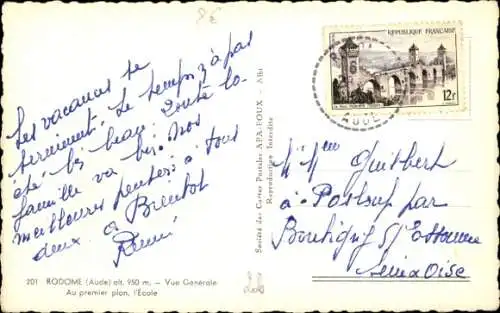 Les vacances se
terminent. Le temps n'a pas
été bien beau. Toute la
famille va bien. Nos
meilleures pensées à tous
deux. à Bientôt
Rémi
201 RODOME (Aude) alt. 950 m. — Vue Générale
Au premier plan, l'École
Société des Cartes Postales APA-POUX - Albi
Reproduction Interdite
REPUBLIQUE FRANÇAISE
12f
AUDE
Mr Mme Guilbert
à
par
Boutigny S/ Essonne
Seine & Oise